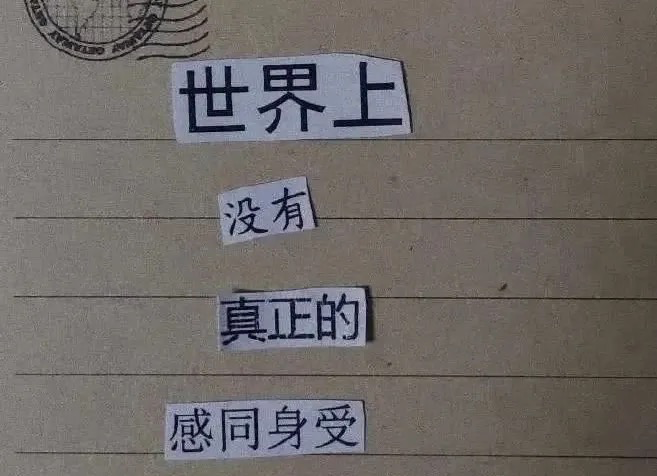 GETAWAY GETAWAY
世界上
没有
真正的
感同身受